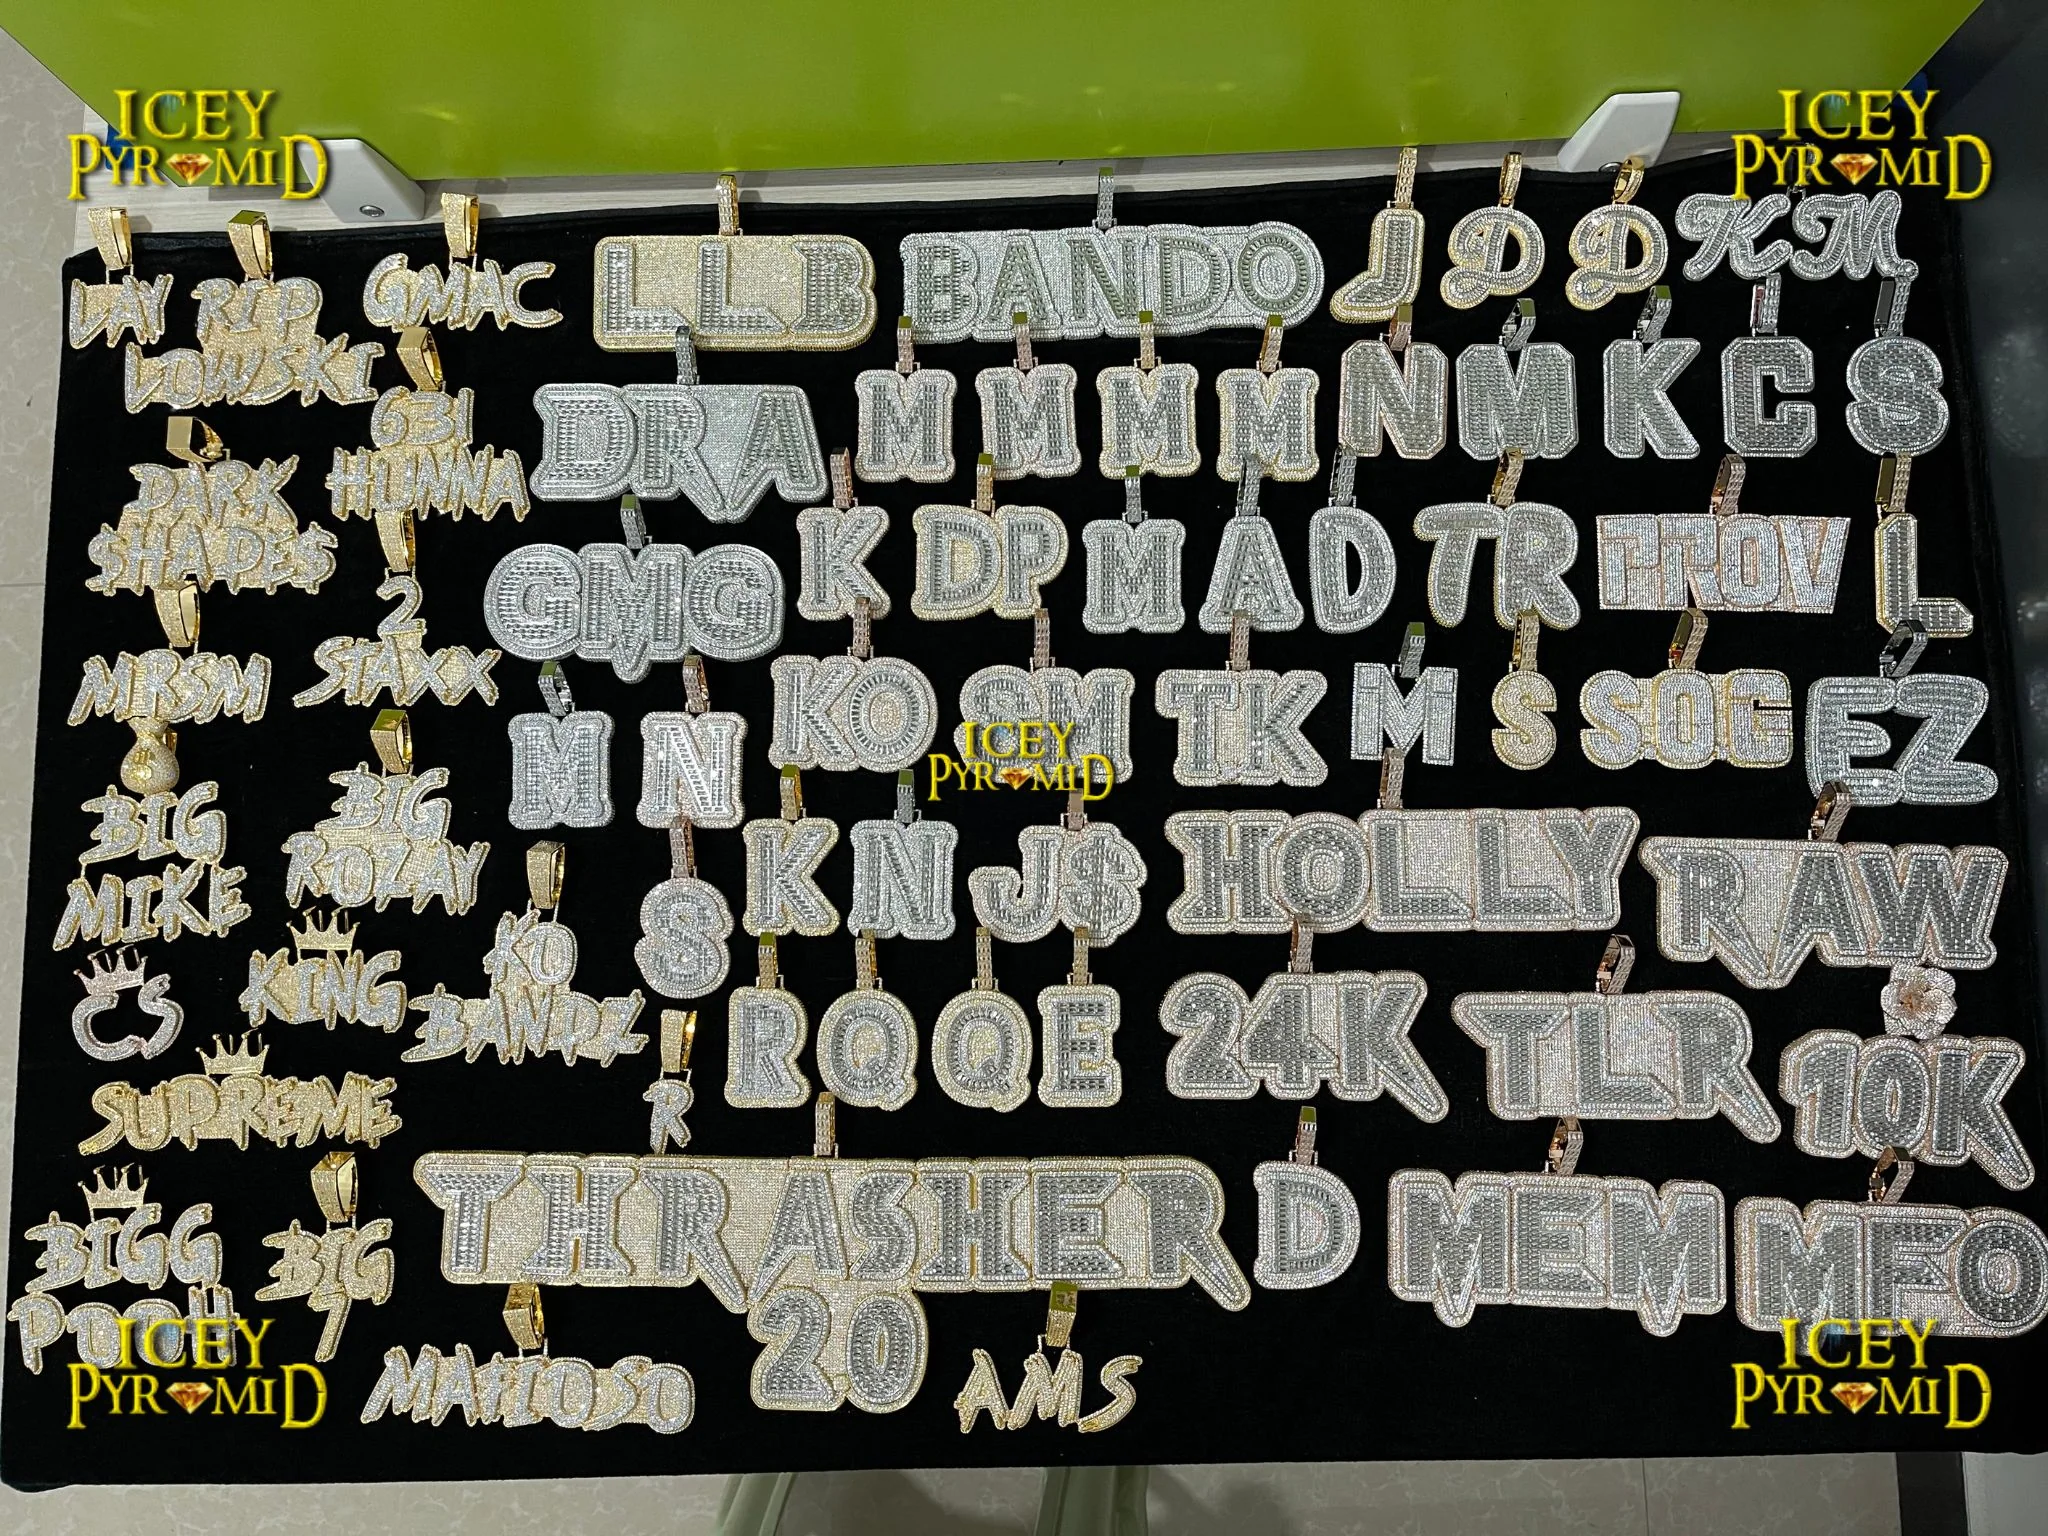 ICEY
PYRAMID
ICEY
PYRAMID
LAY
RIP
LOWSKI
GMAC
LLB
BANDO
J
D
D
KM
631
HUNNA
DRA
M
M
M
M
N
M
K
C
S
DARK
$HADE$
2
STAXX
GMG
K
DP
M
A
D
TR
PROV
L
MRSM
M
N
KO
SM
TK
M
S
SOG
EZ
ICEY
PYRAMID
BIG
MIKE
BIG
ROZAY
S
K
N
J$
HOLLY
RAW
CS
KING
KO
BANDZ
R
Q
Q
E
24K
TLR
10K
SUPREME
R
BIGG
POOH
BIG
7
THRASHER
20
D
MEM
MFO
MAFIOSO
AMS
ICEY
PYRAMID
ICEY
PYRAMID